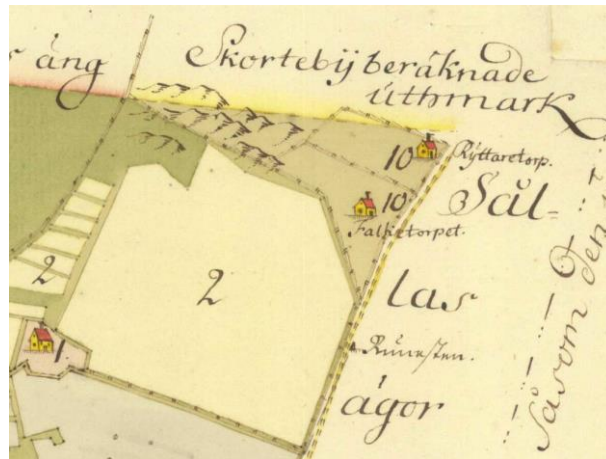 s äng
Skortebÿ beräknade
uthmark
10
Rÿttaretorp.
10
Falketorpet.
Säl-
las
ägor
2
2
Runesten.
1.
Såsom Den